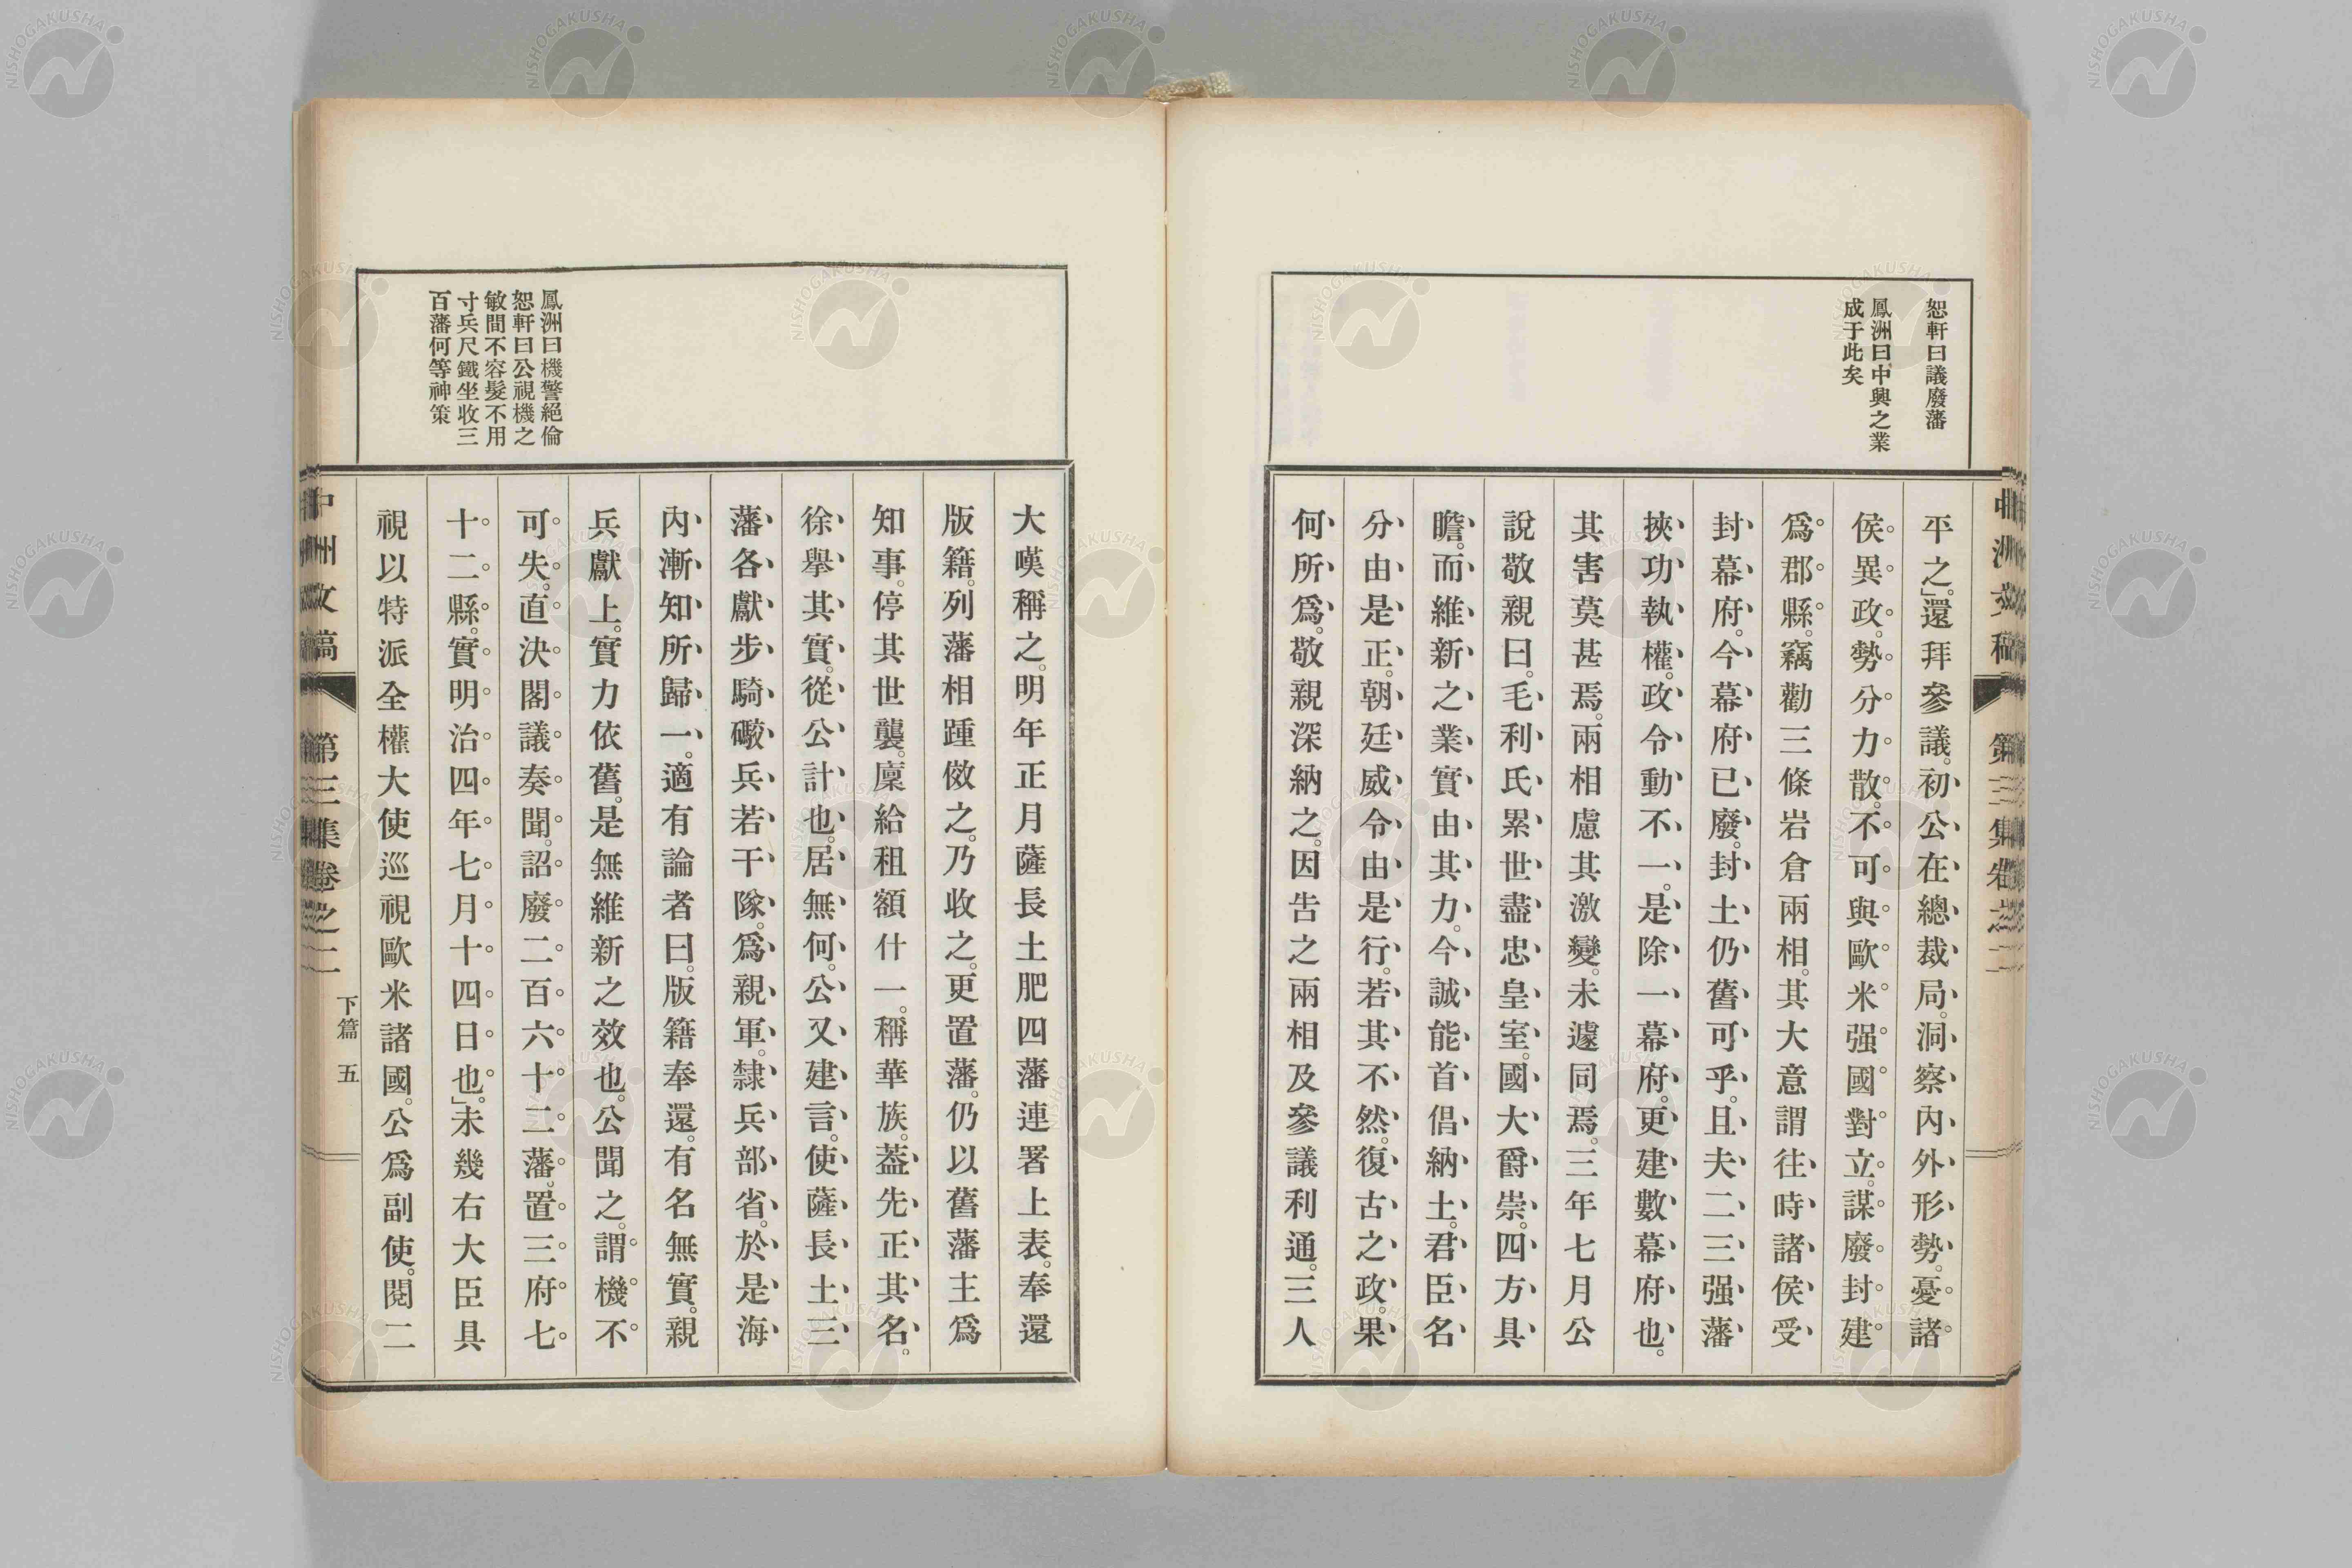 恕軒曰議廢藩
鳳洲曰中興之業
成于此矣
平之」還拜參議。初公在總裁局。洞察內外形勢。憂諸
侯異政。勢分力散。不可與歐米强國對立。謀廢封建
爲郡縣。竊勸三條岩倉兩相。其大意謂往時諸侯受
封幕府。今幕府已廢。封土仍舊可乎。且夫二三强藩
挾功執權。政令動不一。是除一幕府。更建數幕府也。
其害莫甚焉。兩相慮其激變。未遽同焉。三年七月公
說敬親曰。毛利氏累世盡忠皇室。國大爵崇。四方具
瞻。而維新之業。實由其力。今誠能首倡納土。君臣名
分由是正。朝廷威令由是行。若其不然。復古之政。果
何所爲。敬親深納之。因告之兩相及參議利通。三人
中洲文稿 第三集卷之二
鳳洲曰機警絕倫
恕軒曰公視機之
敏間不容髮不用
寸兵尺鐵坐收三
百藩何等神策
大嘆稱之。明年正月薩長土肥四藩連署上表。奉還
版籍。列藩相踵傚之。乃收之。更置藩。仍以舊藩主爲
知事。停其世襲。廩給租額什一。稱華族。蓋先正其名。
徐擧其實。從公計也。居無何。公又建言。使薩長土三
藩各獻步騎礮兵若干隊。爲親軍。隸兵部省。於是海
內漸知所歸一。適有論者曰。版籍奉還。有名無實。親
兵獻上。實力依舊。是無維新之效也。公聞之。謂機不
可失。直決閣議奏聞。詔廢二百六十二藩。置三府七
十二縣。實明治四年七月十四日也」未幾右大臣具
視以特派全權大使巡視歐米諸國。公爲副使。閱二
中洲文稿 第三集卷之二 下篇 五
NISHOGAKUSHA